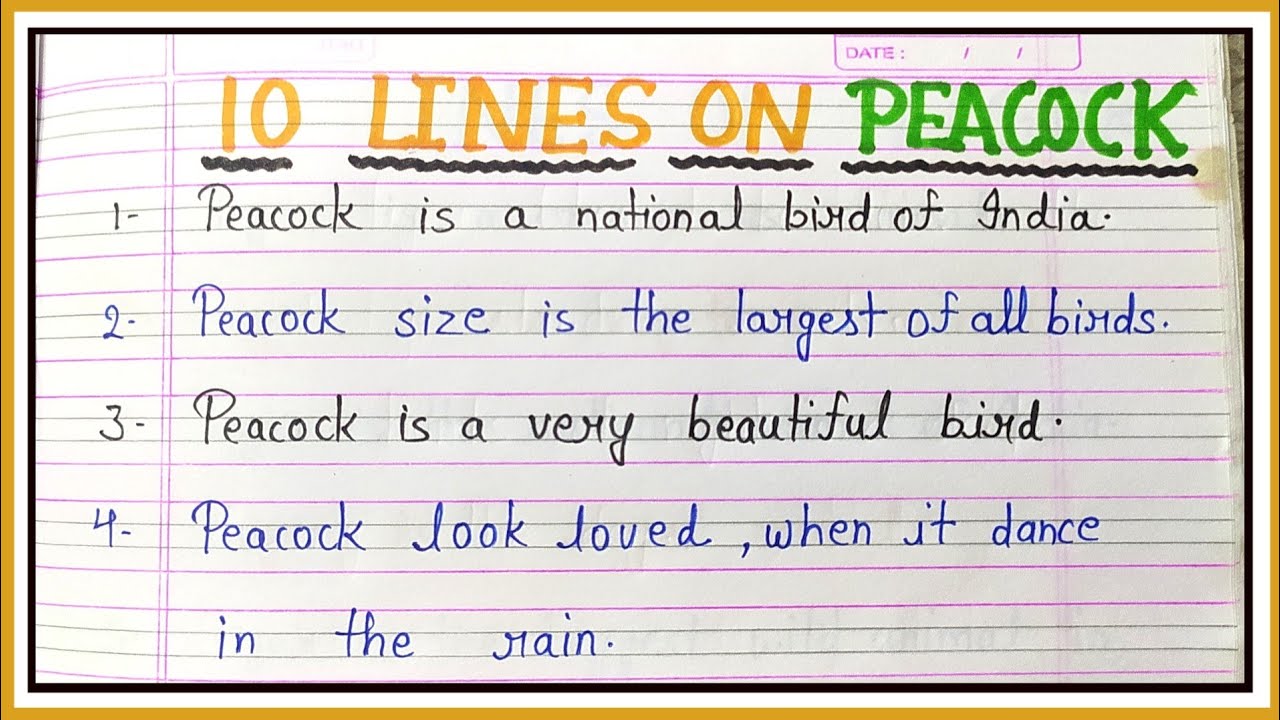 DATE: / /
10 LINES ON PEACOCK
1- Peacock is a national bird of India.
2- Peacock size is the largest of all birds.
3- Peacock is a very beautiful bird.
4- Peacock look loved, when it dance
in the rain.